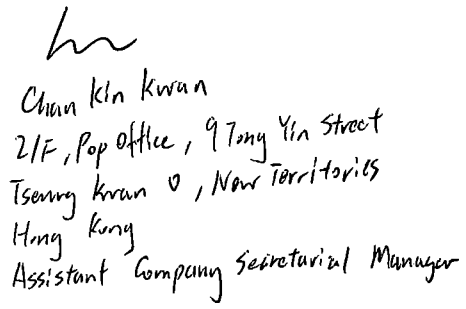 Chan Kin Kwan
2/F, Pop Office, 9 Tong Yin Street
Tseung Kwan O, New Territories
Hong Kong
Assistant Company Secretarial Manager